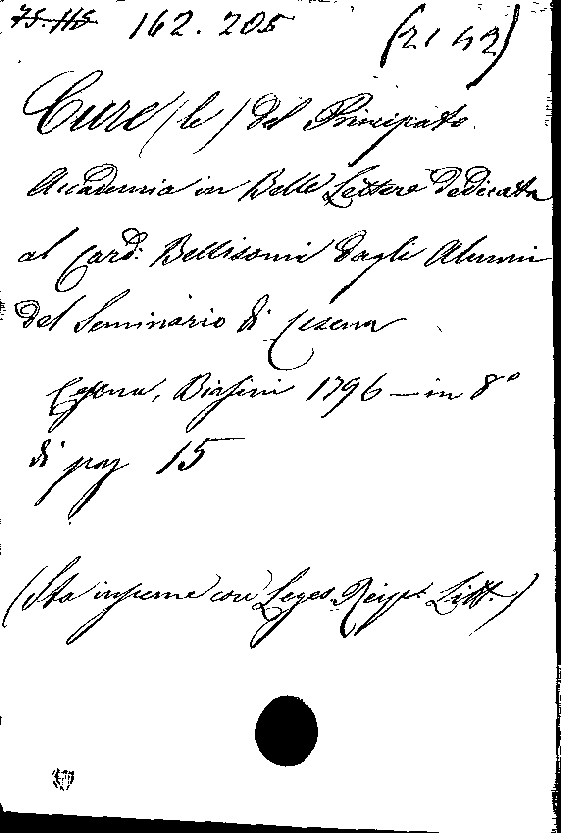 75.H5 162.205 (21 42)
Cure (le) del Principato.
Accademia in Belle Lettere dedicata
al Card: Bellisomi dagli Alunni
del Seminario di Cesena
Cesena, Biasini 1796 — in 8°
di pag 15
(Sta insieme con Leges Reip. Litt.)